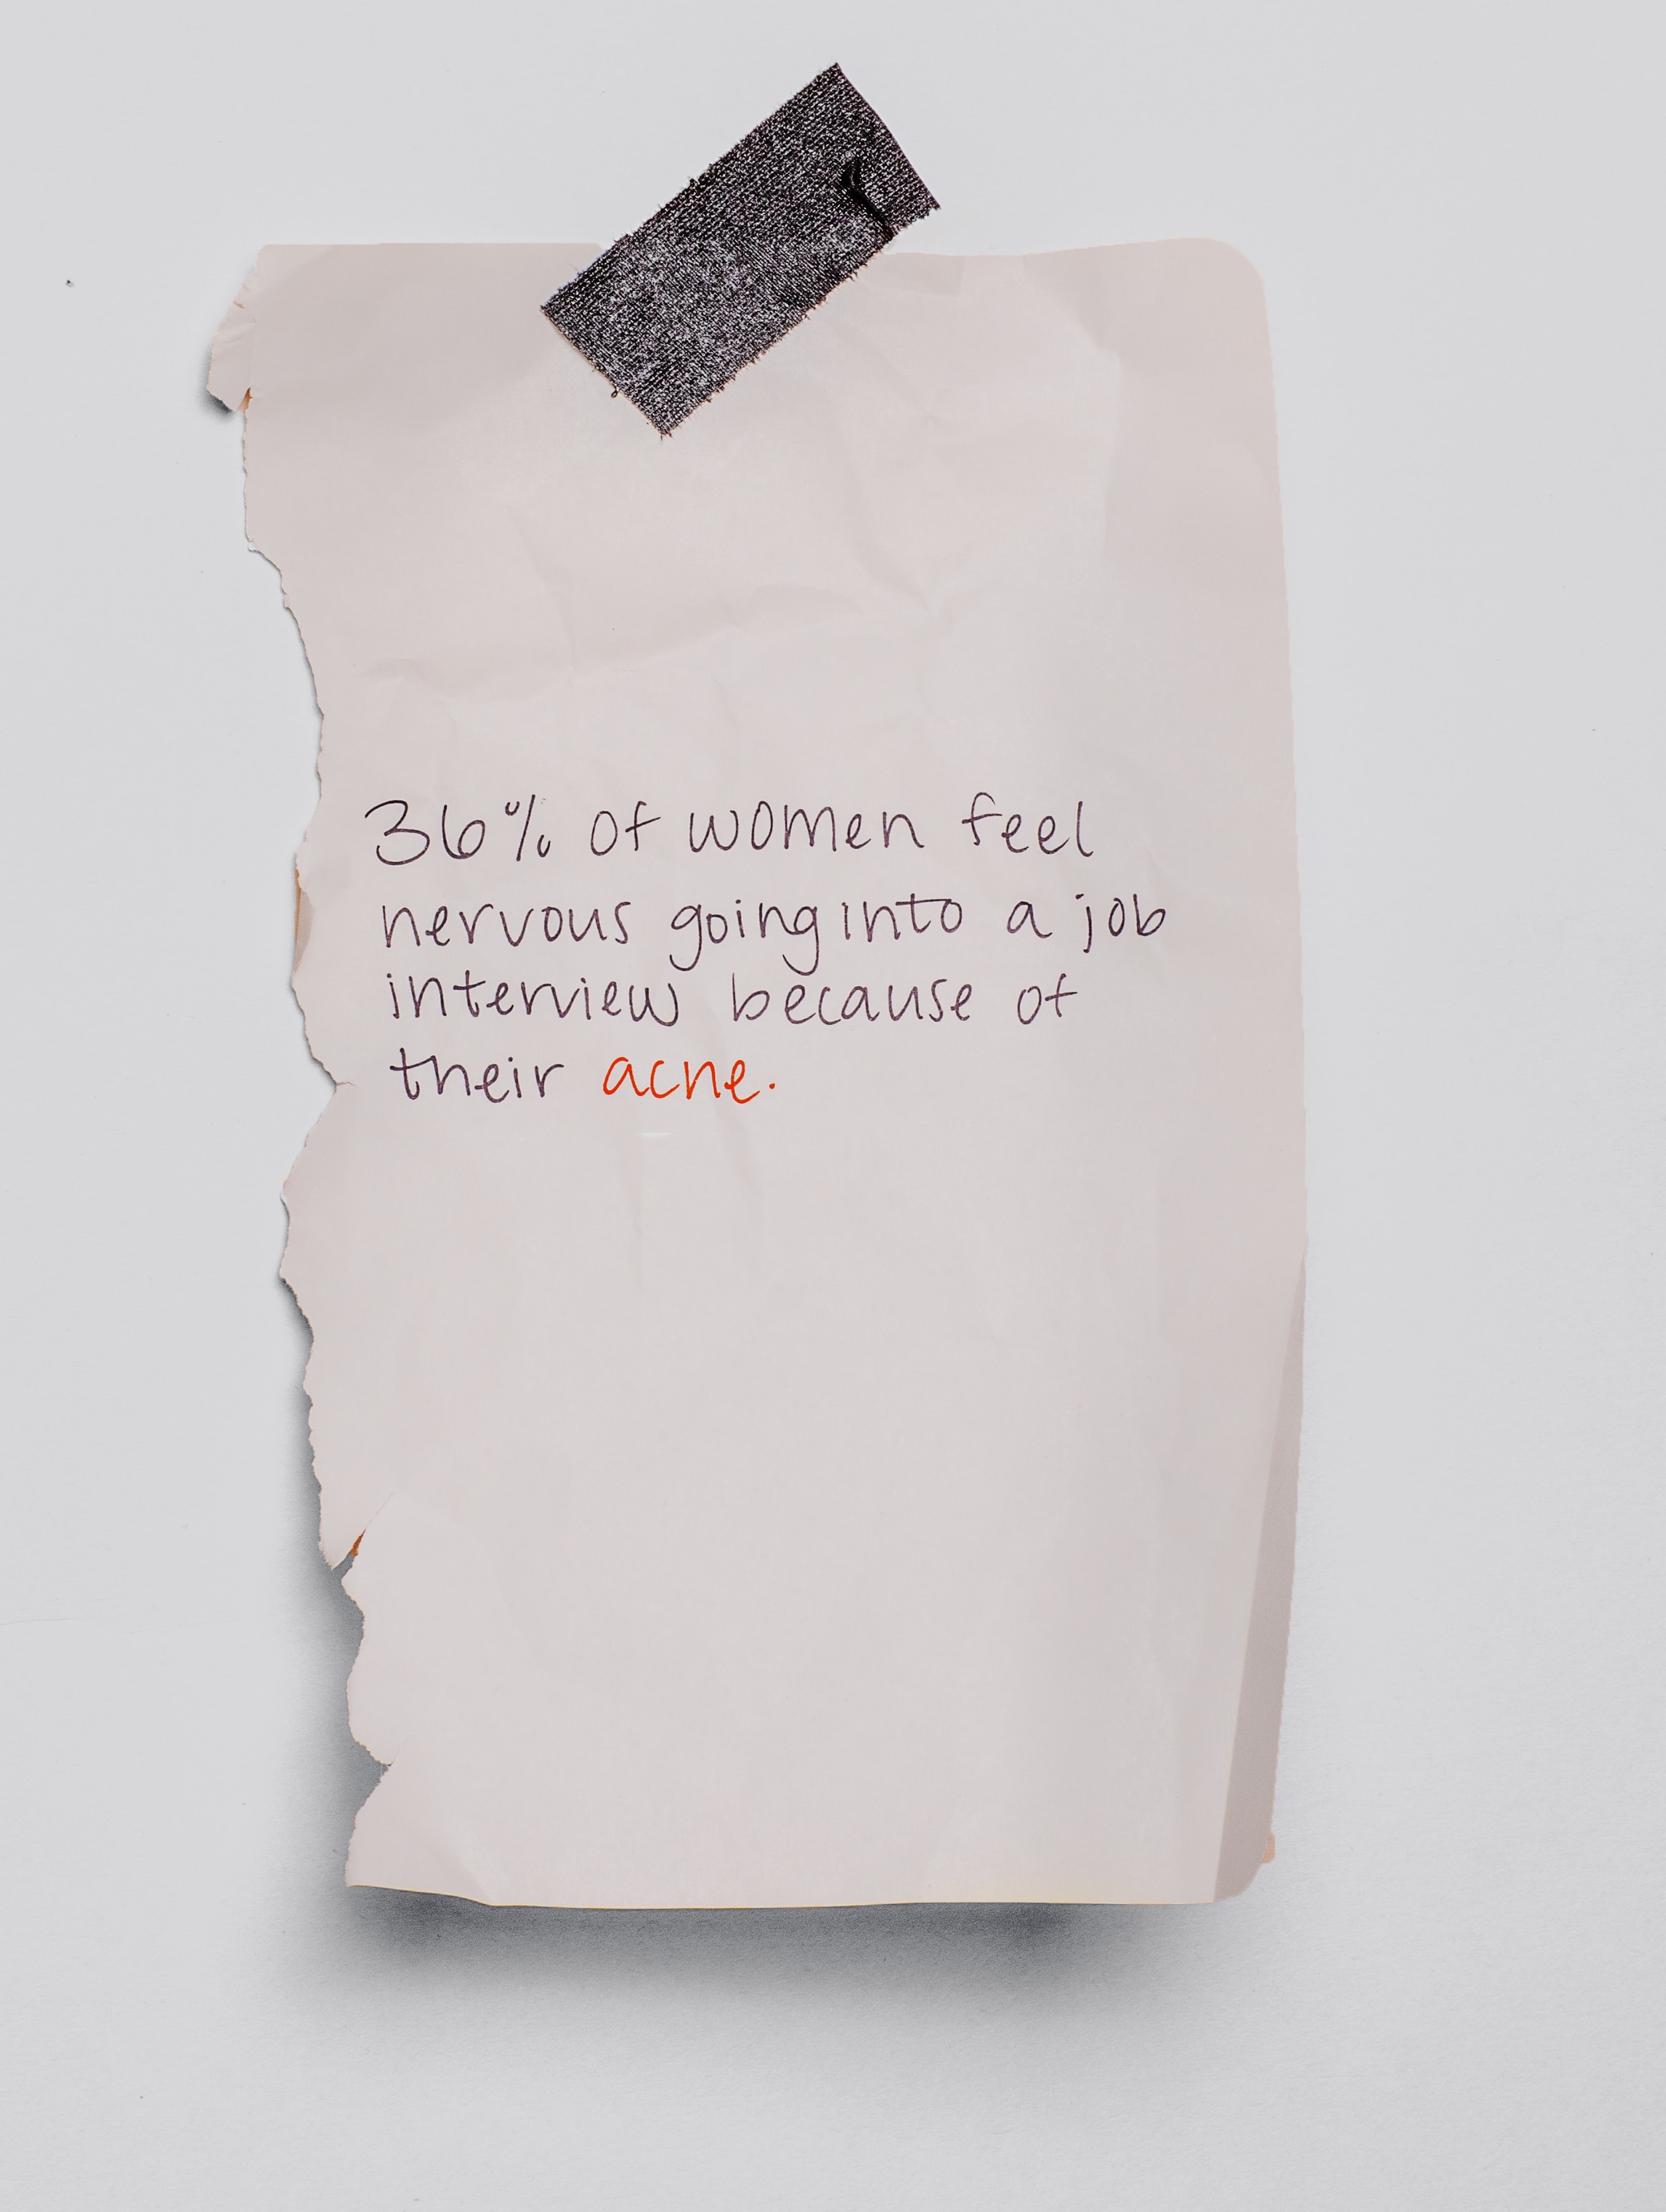 36% of women feel
nervous going into a job
interview because of
their acne.